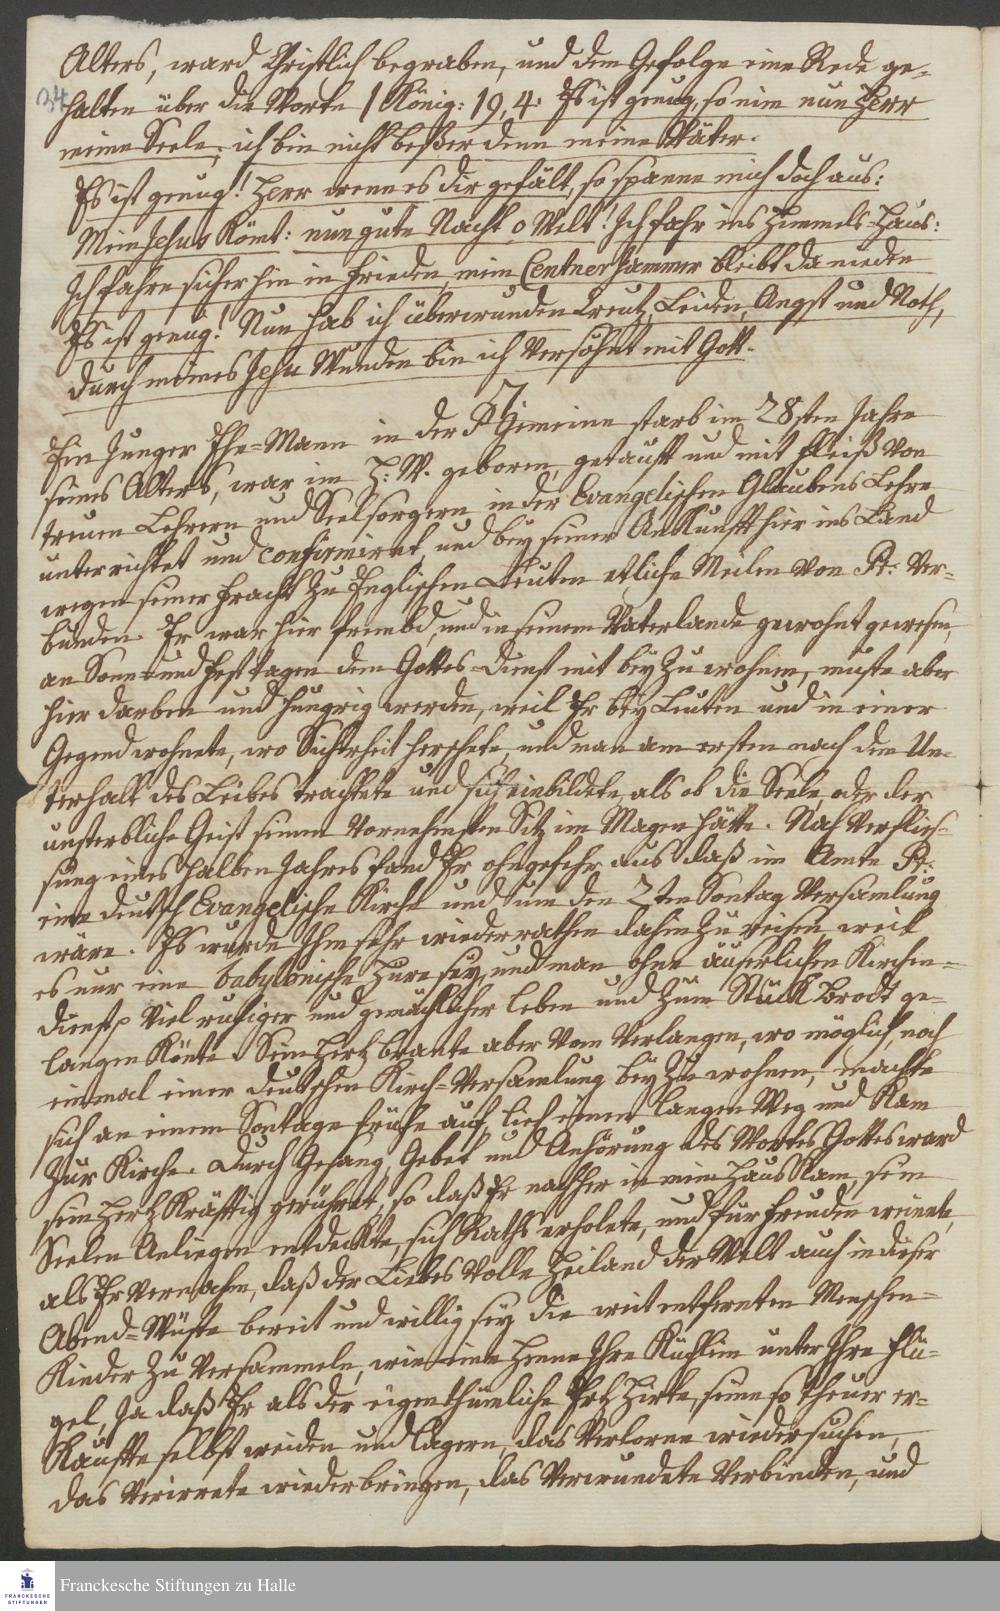 Alters, ward Christlich begraben, und dem Gefolge eine Rede ge-
34
halten über die Worte 1 König: 19,4. Es ist genug, so nim nun Herr
meine Seele; ich bin nicht beßer denn meine Väter.
Es ist genug! Herr wenn es dir gefält, so spanne mich doch aus:
Mein Jesus kömt: nun gute Nacht o Welt! Ich fahr ins Himmels-Haus:
Ich fahre sicher hin in Frieden, mein Centner Jammer bleibt danieden
Es ist genug! Nun hab ich überwunden Creutz, Leiden, Angst und Noth,
durch meines Jesu Wunden bin ich Versöhnt mit Gott.
7
Ein Junger Ehe-Mann in der Gemeine starb im 28sten Jahre
seines Alters, war im H: W. geboren, getauft und mit Fleiß von
treuen Lehrern und Seelsorgern in der Evangelischen Glaubens Lehre
unterrichtet und confirmiret, und bey seiner Ankunfft hier ins Land
wegen seiner Fracht zu Englischen Leuten etliche Meilen von R: Ver-
bunden. Er war hier frembd, und in seinem Vaterlande gewohnt gewesen,
an Sonn- und Festtagen dem Gottes-Dienst mit bey zu wohnen, muste aber
hier darben und hungrig werden, weil Er bey Leuten und in einer
Gegend wohnete, wo Sicherheit herschete, und man am ersten nach dem Un-
terhalt des Leibes trachtete und sich einbildete, als ob die Seele, oder der
unsterbliche Geist seinen Vornehmsten Sitz im Magen hätte. Nach Verflies-
sung eines halben Jahres fand Er ohngefehr aus daß im Amte R:
eine deutsch Evangelische Kirche und um den 2ten Sontag Versamlung
wäre. Es wurde Ihm sehr wiederrathen dahin zu reisen, weil
es nur eine babylonische Hure sey, und man ohne äuserlichen Kirchen-
dienst viel ruhiger und gemächlicher leben und zum Stück Brodt ge-
langen könte. Sein Hertz brante aber vom Verlangen, wo möglich, noch
einmal einer deutschen Kirch-Versamlung bey zu wohnen, machte
sich an einem Sontage frühe auf, lief einen langen Weg und kam
zur Kirche. Durch Gesang, Gebet und Anhörung des Wortes Gottes ward
sein Hertz kräfftig gerühret, so daß Er nachher in mein Haus kam, sein
Seelen Anliegen entdeckte, sich Raths erholete, und für Freuden weinete,
als Er vernahm, daß der Liebes volle Heiland der Welt auch in dieser
Abend-Wüste bereit und willig sey die weit entfernten Menschen-
Kinder zu versammeln, wie eine Henne Ihre Küchlein unter Ihre Flü-
gel, Ja daß Er als der eigenthümliche Ertz Hirte, seine so theuer er-
kauffte selbst weiden und lagern, das Verlorne wiedersuchen,
das Verirrete wiederbringen, das Verwundete Verbinden, und
FRANCKESCHE STIFTUNGEN
Franckesche Stiftungen zu Halle